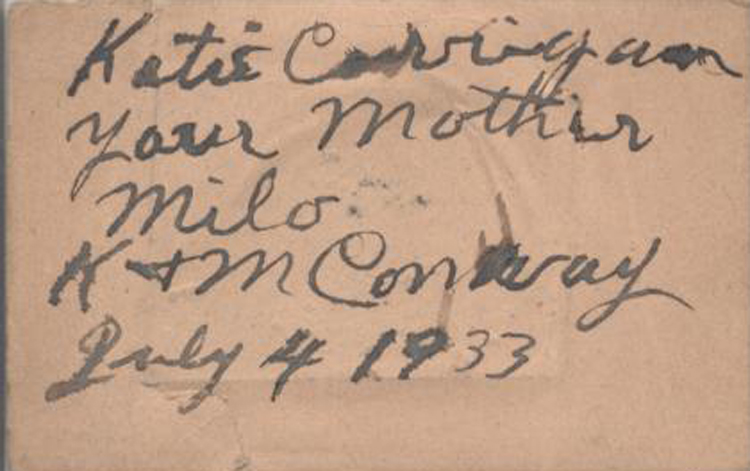 Katie Corrigan
Your Mother
Milo
K + M Conway
July 4 1933